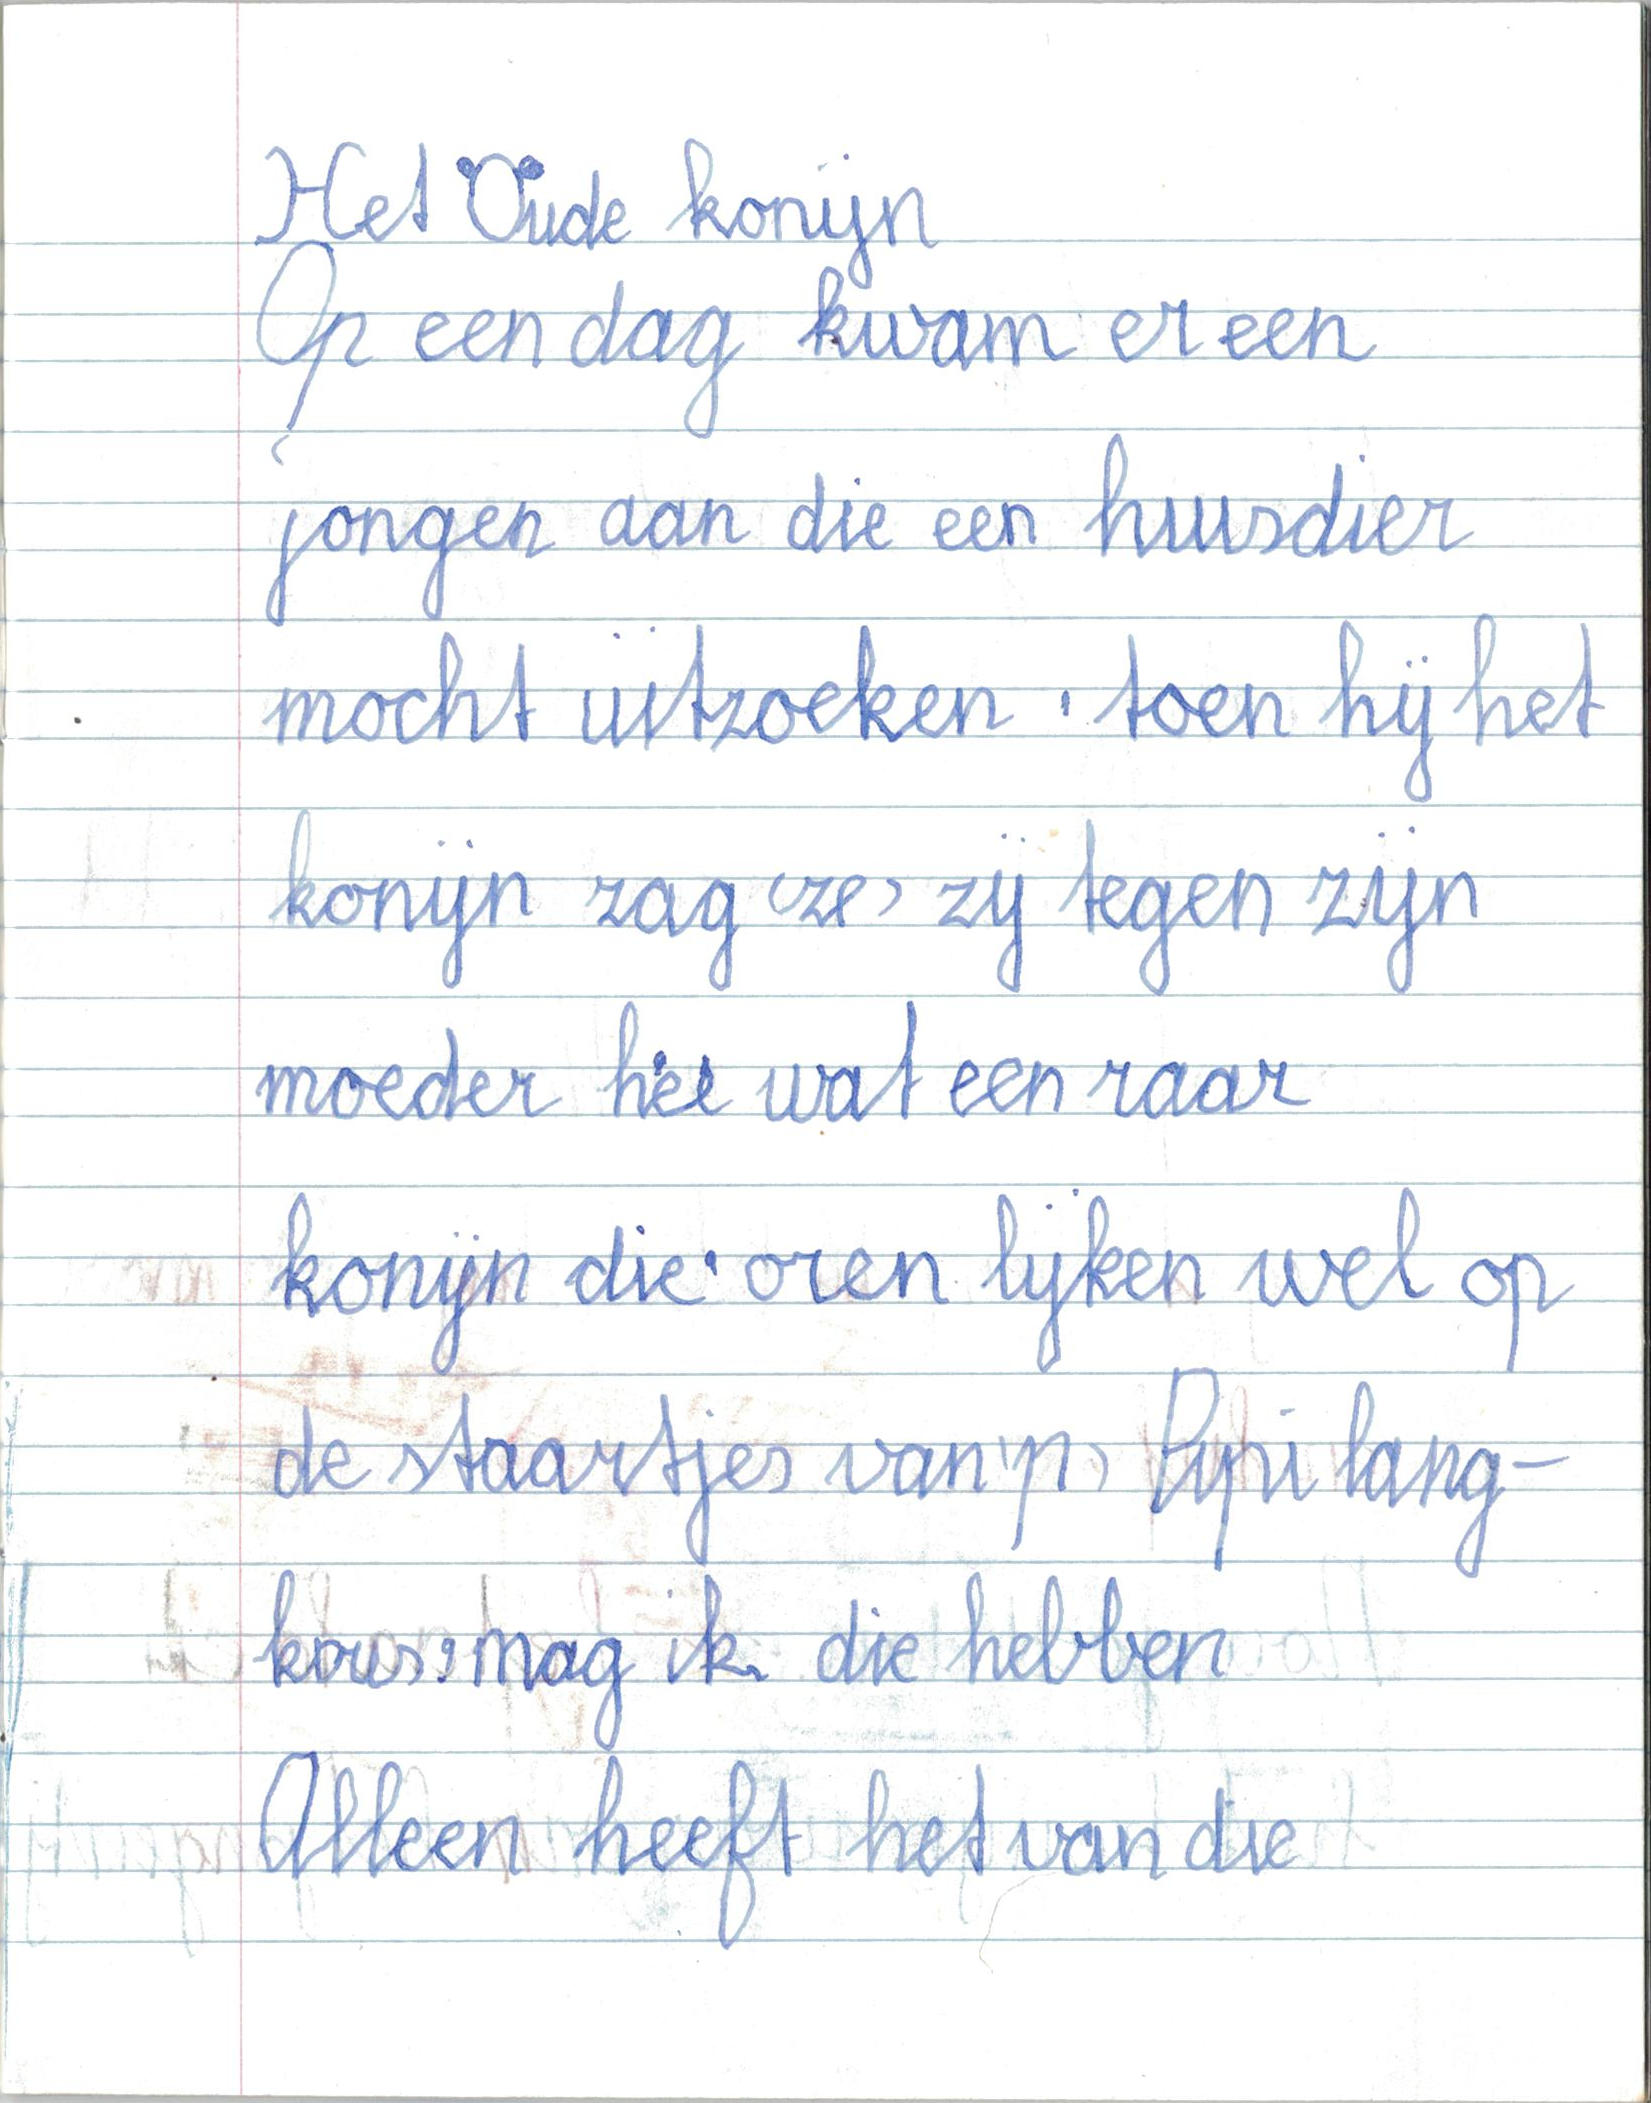 Het Oude konijn
Op een dag kwam er een
jongen aan die een huisdier
mocht uitzoeken . toen hij het
konijn zag (ze) zij tegen zijn
moeder hee wat een raar
konijn die oren lijken wel op
de staartjes van (p) Pipi lang-
kous: mag ik die hebben
Alleen heeft het van die